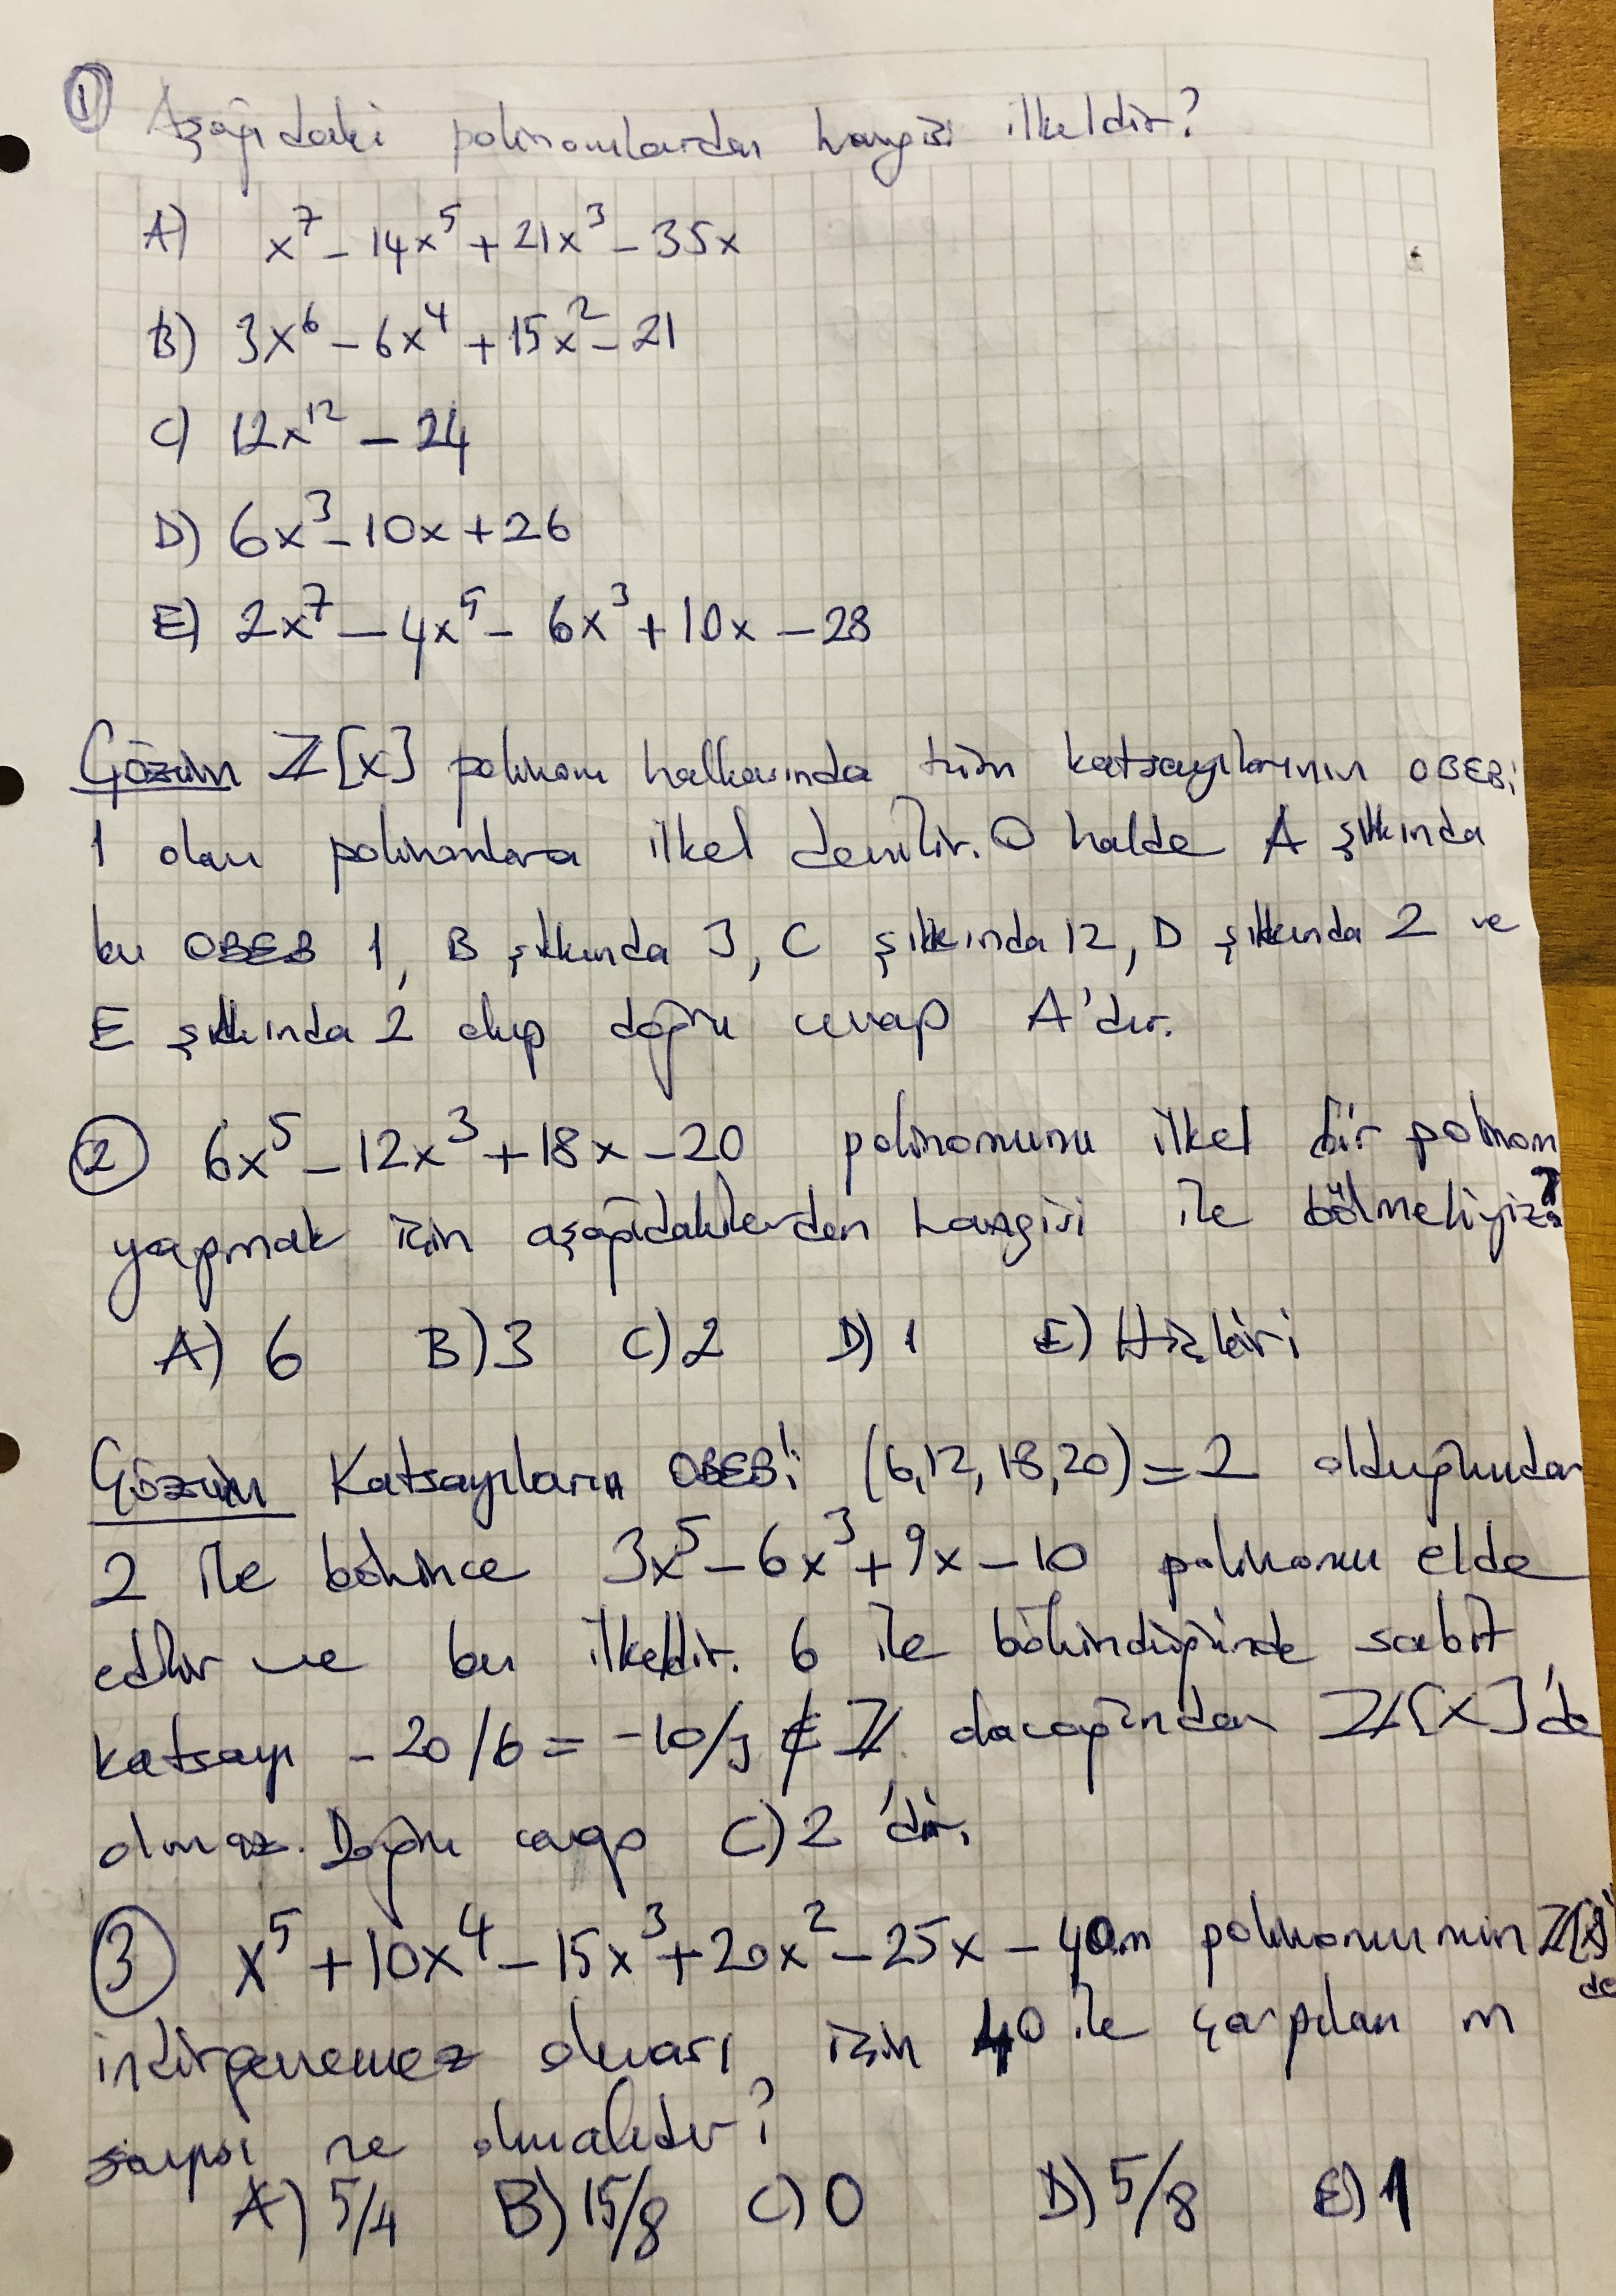 ① Aşağıdaki polinomlardan hangisi ilkeldir?
A) x⁷ - 14x⁵ + 21x³ - 35x
B) 3x⁶ - 6x⁴ + 15x² - 21
C) 12x¹² - 24
D) 6x³ - 10x + 26
E) 2x⁷ - 4x⁵ - 6x³ + 10x - 28
Çözüm ℤ[x] polinom halkasında tüm katsayılarının OBEB'i
1 olan polinomlara ilkel denilir. O halde A şıkkında
bu OBEB 1, B şıkkında 3, C şıkkında 12, D şıkkında 2 ve
E şıkkında 2 olup doğru cevap A'dır.
② 6x⁵ - 12x³ + 18x - 20 polinomunu ilkel bir polinom
yapmak için aşağıdakilerden hangisi ile bölmeliyiz?
A) 6 B) 3 C) 2 D) 1 E) Hiçbiri
Çözüm Katsayıların OBEB'i (6,12,18,20) = 2 olduğundan
2 ile bölünce 3x⁵ - 6x³ + 9x - 10 polinomu elde
edilir ve bu ilkeldir. 6 ile bölündüğünde sabit
katsayı -20/6 = -10/3 ∉ ℤ olacağından ℤ[x]'de
olmaz. Doğru cevap C) 2 'dir.
③ x⁵ + 10x⁴ - 15x³ + 20x² - 25x - 40.m polinomunun ℤ[x]'de
indirgenemez olması için 40 ile çarpılan m
sayısı ne olmalıdır?
A) 5/4 B) 15/8 C) 0 D) 5/8 E) 1